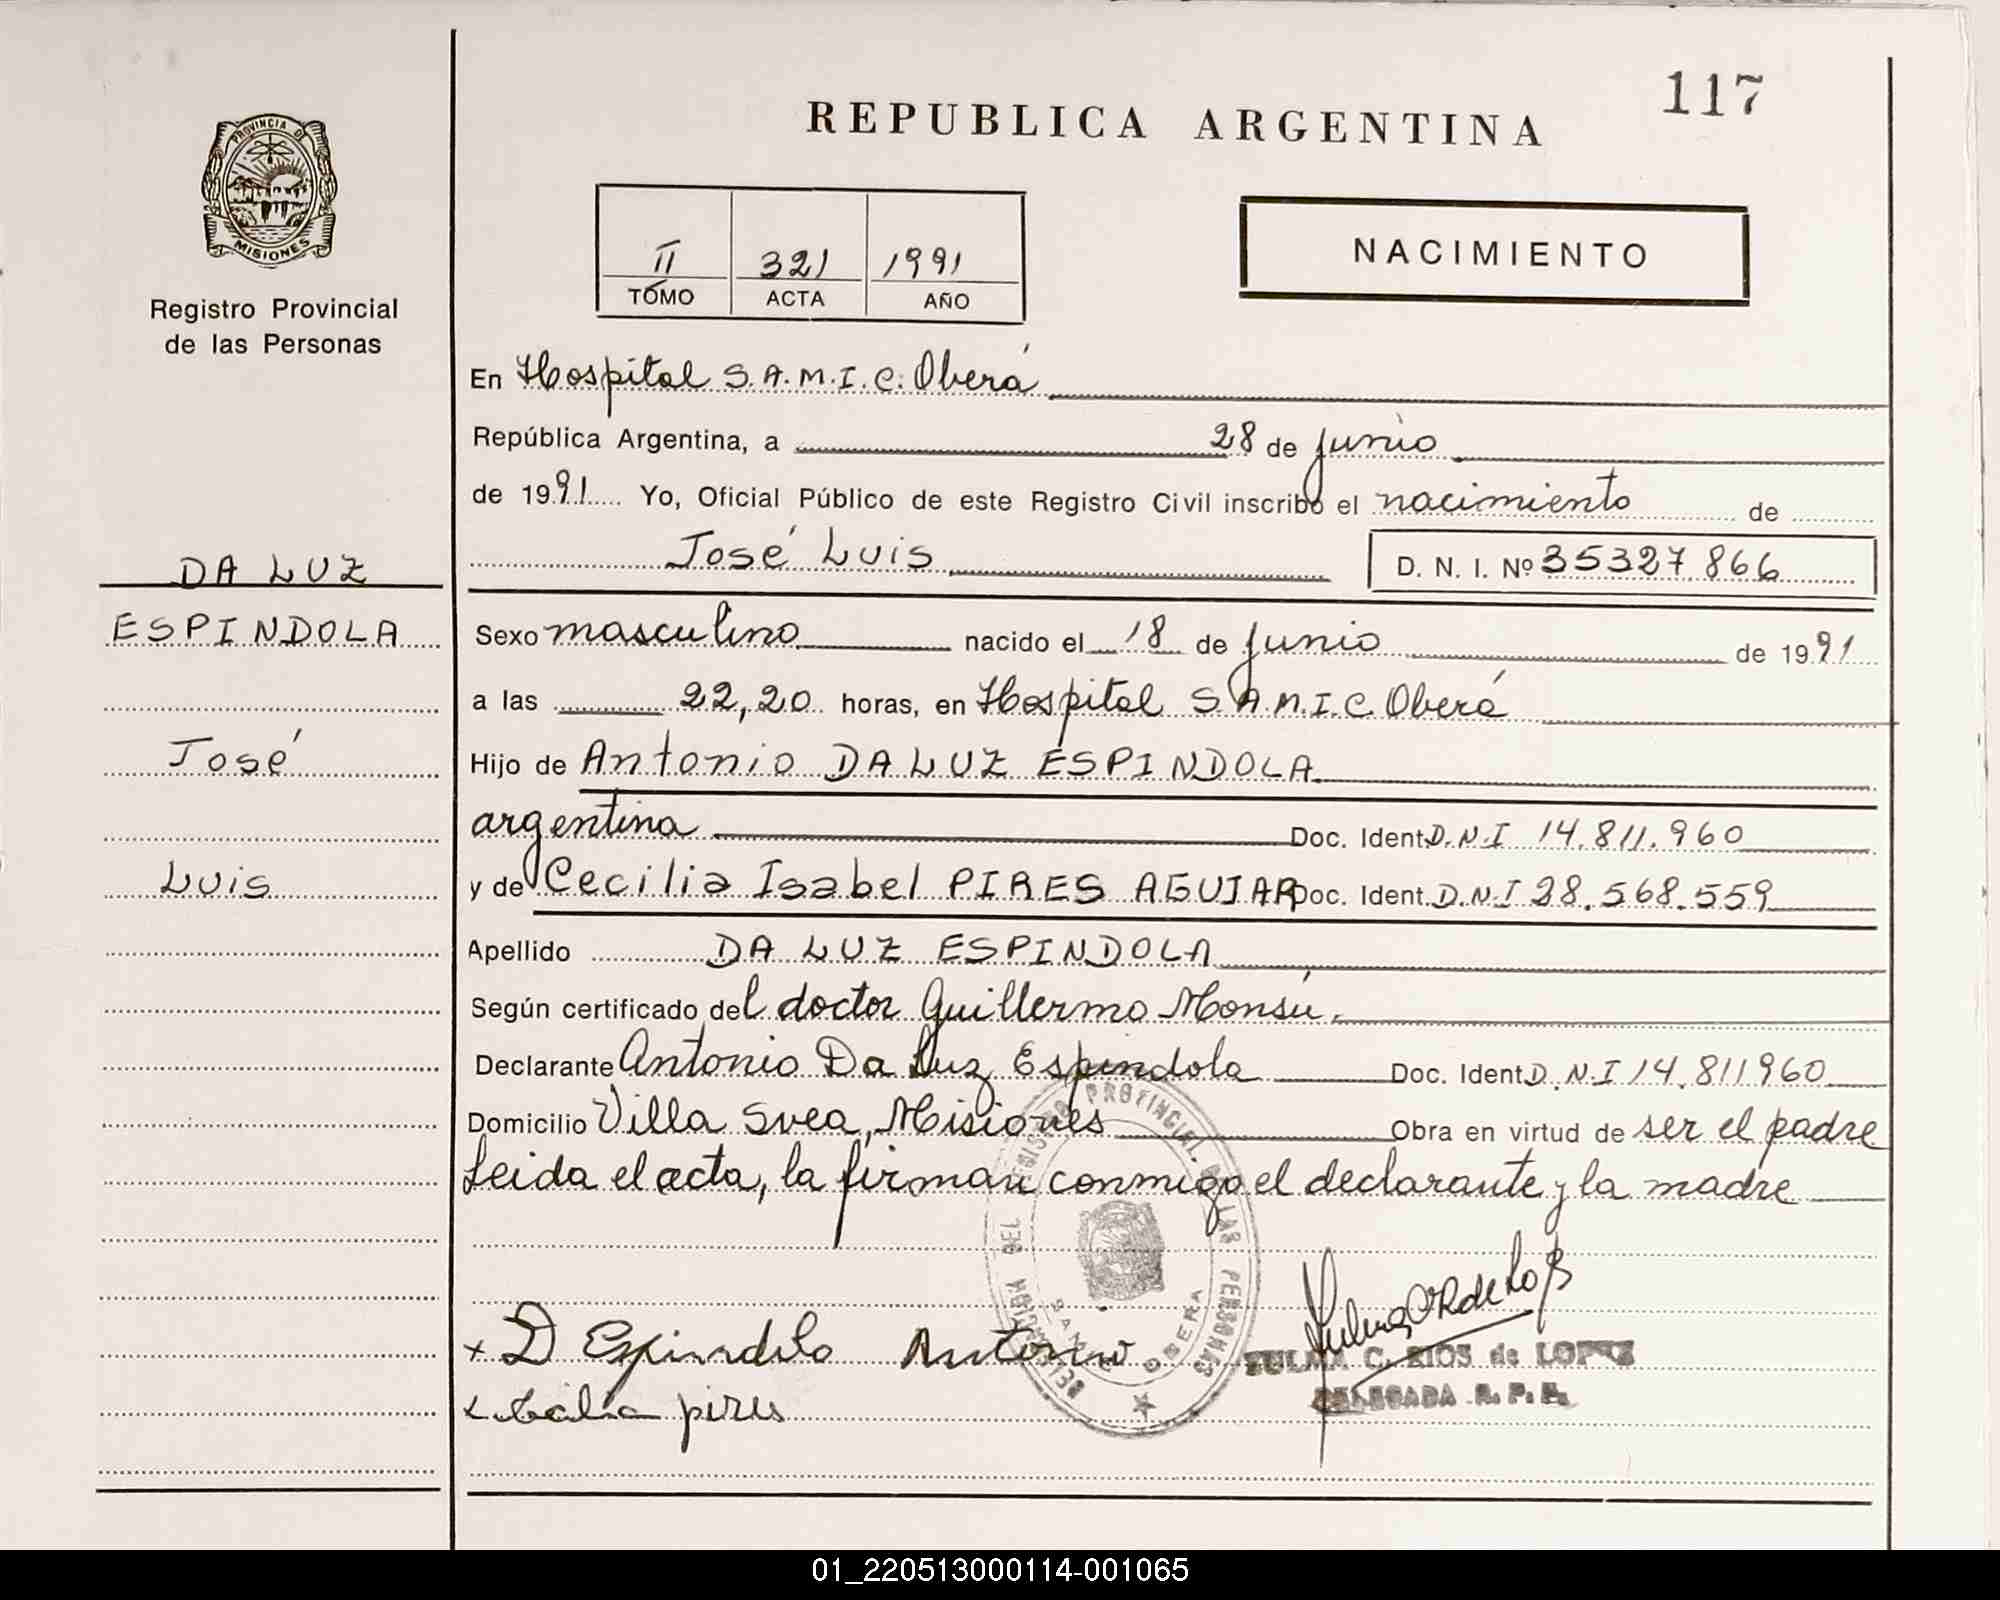 117
REPUBLICA ARGENTINA
PROVINCIA DE
MISIONES
Registro Provincial
de las Personas
II 321 1991
TOMO ACTA AÑO
NACIMIENTO
En Hospital S.A.M.I.C. Oberá
República Argentina, a 28 de junio
de 1991 Yo, Oficial Público de este Registro Civil inscribo el nacimiento de
José Luis D. N. I. Nº 35327866
DA LUZ
ESPINDOLA
José
Luis
Sexo masculino nacido el 18 de junio de 1991
a las 22,20 horas, en Hospital S.A.M.I.C. Oberá
Hijo de Antonio DA LUZ ESPINDOLA
argentina Doc. Ident. D.N.I 14.811.960
y de Cecilia Isabel PIRES AGUIAR Doc. Ident. D.N.I 28.568.559
Apellido DA LUZ ESPINDOLA
Según certificado del doctor Guillermo Monsú.
Declarante Antonio Da Luz Espindola Doc. Ident. D.N.I 14.811960
Domicilio Villa Svea, Misiones Obra en virtud de ser el padre
Leida el acta, la firman conmigo el declarante y la madre
DEL REGISTRO PROVINCIAL DE LAS PERSONAS
OBERA
x D Espindola Antonio
pires
ZULMA C. RIOS de LOPEZ
DELEGADA R. P. P.
01_220513000114-001065